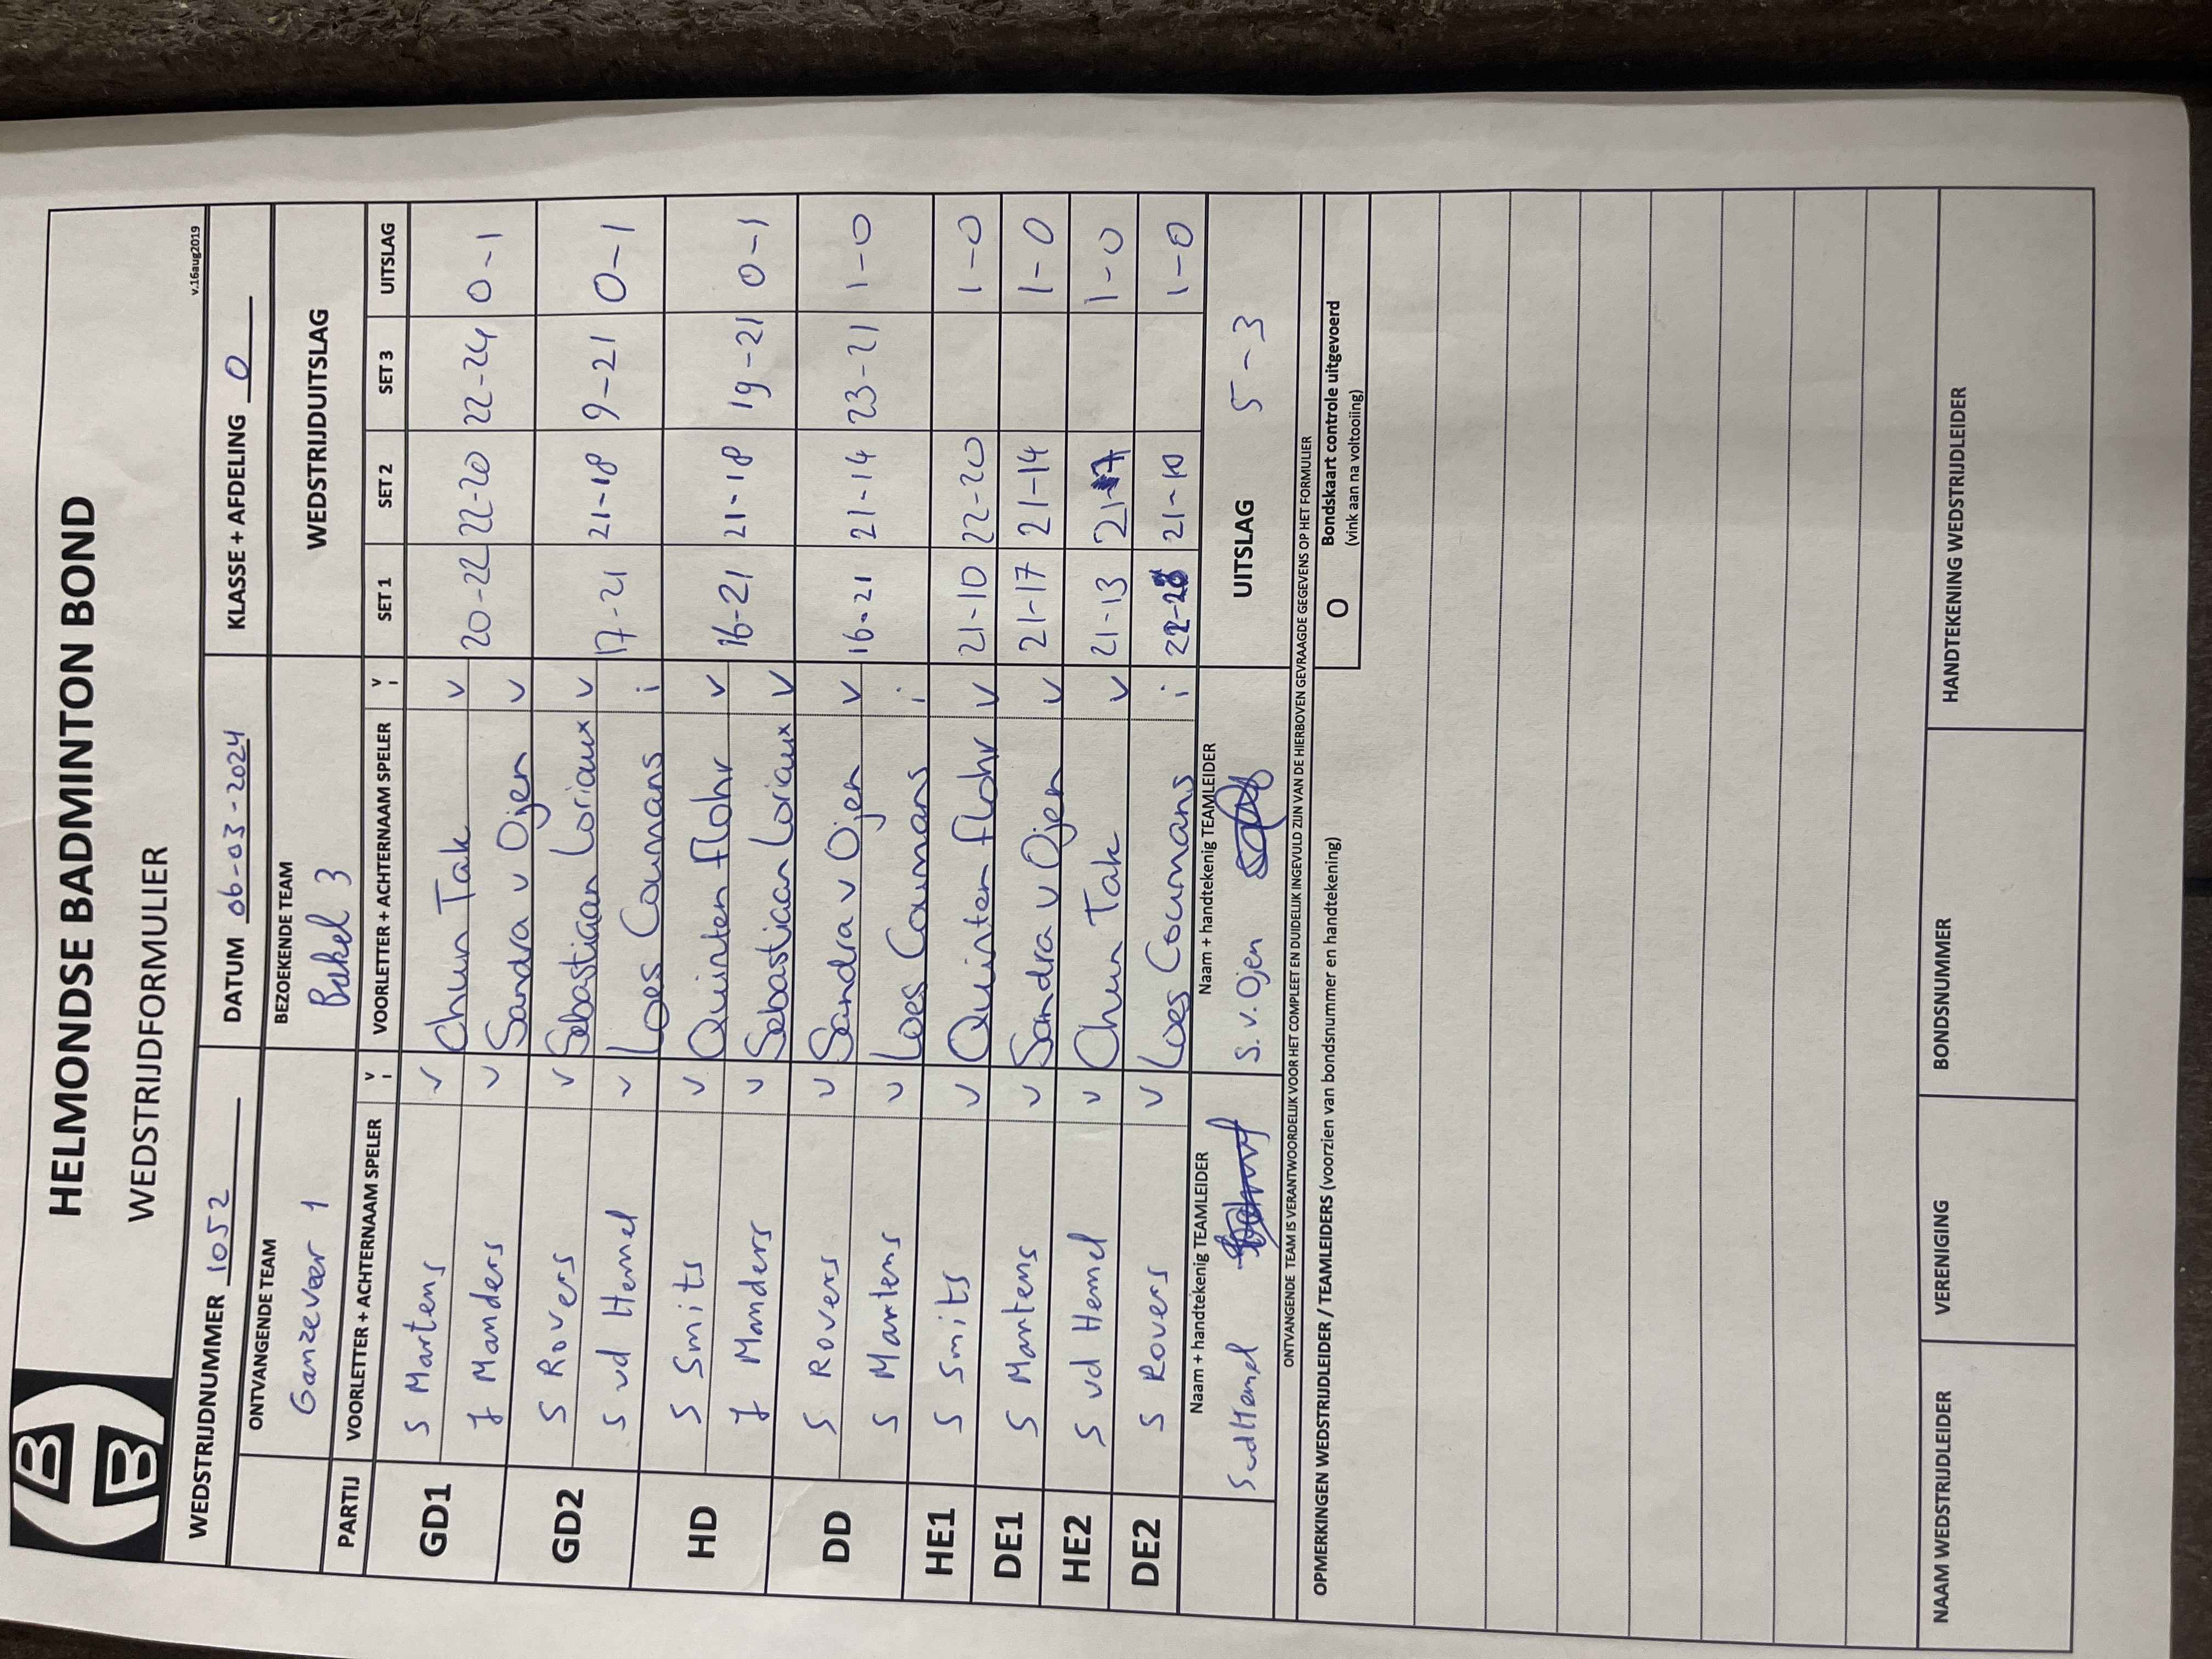 HELMONDSE BADMINTON BOND
WEDSTRIJDFORMULIER
v.16aug2019
WEDSTRIJDNUMMER 1052 DATUM 06-03-2024 KLASSE + AFDELING 0
ONTVANGENDE TEAM BEZOEKENDE TEAM WEDSTRIJDUITSLAG
Ganzeveer 1 Bakel 3
PARTIJ VOORLETTER + ACHTERNAAM SPELER V I VOORLETTER + ACHTERNAAM SPELER V I SET 1 SET 2 SET 3 UITSLAG
GD1 S Martens v Chun Tak v 20-22 22-20 22-24 0-1
J Manders v Sandra v Ojen v
GD2 S Rovers v Sebastiaan Loriaux v 17-21 21-18 9-21 0-1
S vd Hemel v Loes Coumans i
HD S Smits v Quinten Flohr v 16-21 21-18 19-21 0-1
J Manders v Sebastiaan Loriaux v
DD S Rovers v Sandra v Ojen v 16-21 21-14 23-21 1-0
S Martens v Loes Coumans i
HE1 S Smits v Quinten Flohr v 21-10 22-20 1-0
DE1 S Martens v Sandra v Ojen v 21-17 21-14 1-0
HE2 S vd Hemel v Chun Tak v 21-13 21-17 1-0
DE2 S Rovers v Loes Coumans i 21-10 1-0
Naam + handtekenig TEAMLEIDER Naam + handtekenig TEAMLEIDER UITSLAG 5-3
S vd Hemel S. v. Ojen
ONTVANGENDE TEAM IS VERANTWOORDELIJK VOOR HET COMPLEET EN DUIDELIJK INGEVULD ZIJN VAN DE HIERBOVEN GEVRAAGDE GEGEVENS OP HET FORMULIER
OPMERKINGEN WEDSTRIJDLEIDER / TEAMLEIDERS (voorzien van bondsnummer en handtekening) O Bondskaart controle uitgevoerd
(vink aan na voltooiing)
NAAM WEDSTRIJDLEIDER VERENIGING BONDSNUMMER HANDTEKENING WEDSTRIJDLEIDER